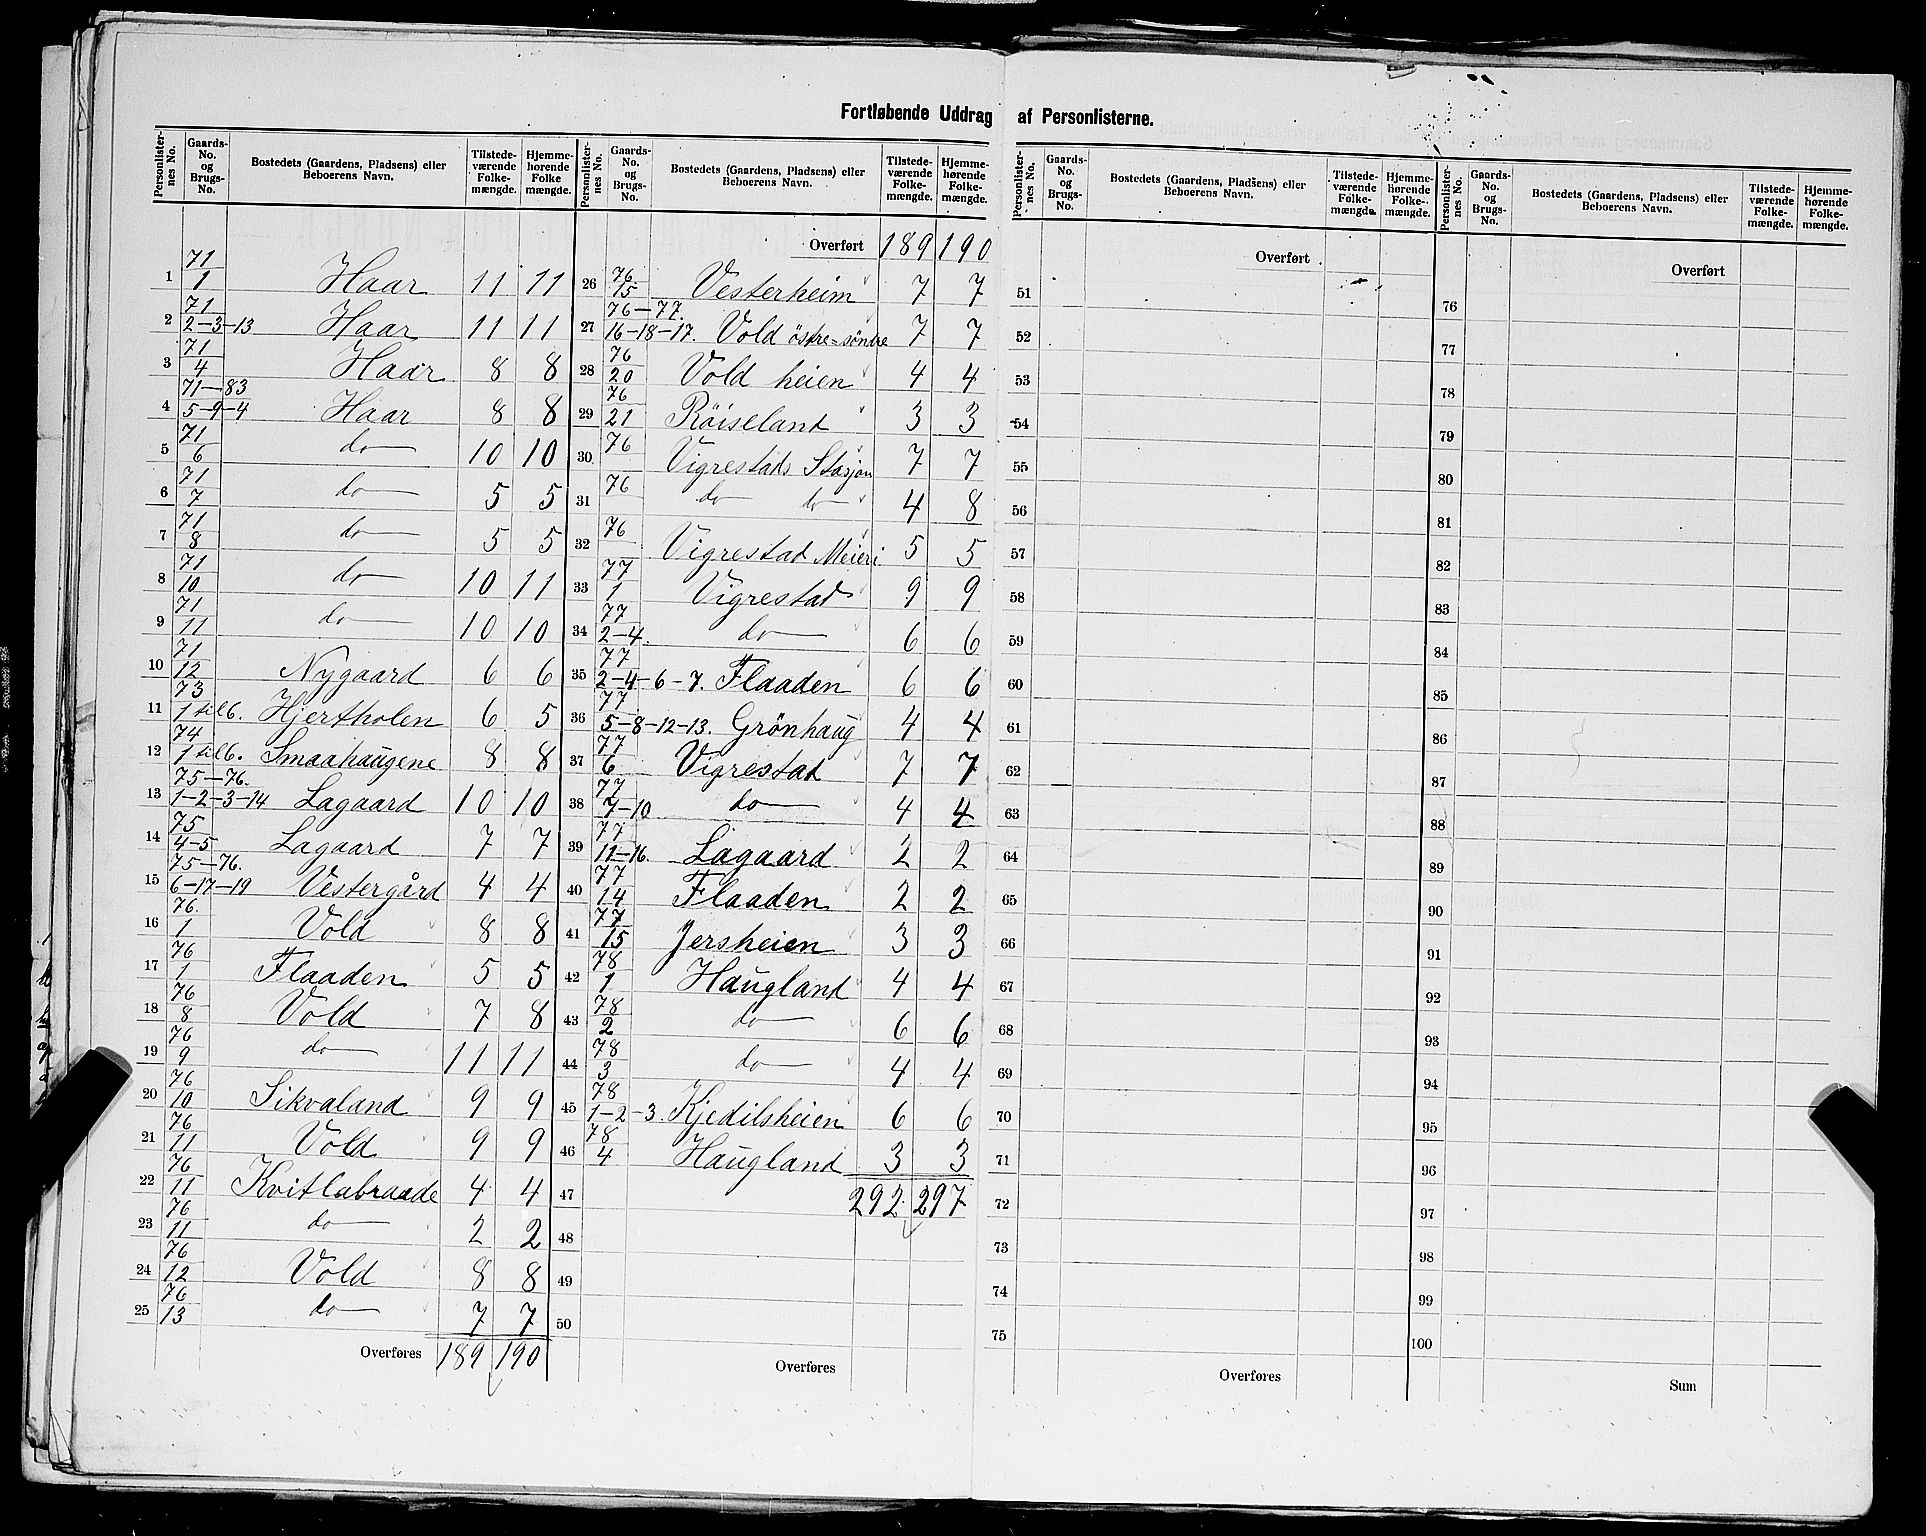 Fortløbende Uddrag af Personlisterne.
Personlister-nes No. Gaards-No. og Brugs-No. Bostedets (Gaardens, Pladsens) eller Beboerens Navn. Tilstede-værende Folke-mængde. Hjemme-hørende Folke mængde.
1 71 1 Haar 11 11
2 71 2-3-13 Haar 11 11
3 71 4 Haar 8 8
4 71-83 5-9-4 Haar 8 8
5 71 6 do 10 10
6 71 7 do 5 5
7 71 8 do 5 5
8 71 10 do 10 11
9 71 11 do 10 10
10 71 12 Nygaard 6 6
11 73 1 til 6. Hjertholen 6 5
12 74 1 til 6. Smaahaugene 8 8
13 75-76. 1-2-3-14 Lagaard 10 10
14 75 4-5 Lagaard 7 7
15 75-76. 6-17-19 Vestergård 4 4
16 76. 1 Vold 8 8
17 76 1 Flaaden 5 5
18 76 8 Vold 7 8
19 76 9 do 11 11
20 76 10 Sikvaland 9 9
21 76 11 Vold 9 9
22 76 11 Kvitlabraade 4 4
23 76 11 do 2 2
24 76 12 Vold 8 8
25 76 13 do 7 7
Overføres 189 190
Personlister-nes No. Gaards-No. og Brugs-No. Bostedets (Gaardens, Pladsens) eller Beboerens Navn. Tilstede-værende Folke-mængde. Hjemme-hørende Folke-mængde.
Overført 189 190
26 76 15 Vesterheim 7 7
27 76-77. 16-18-17. Vold östre=söndre 7 7
28 76 20 Vold heien 4 4
29 76 21 Röiseland 3 3
30 76 Vigrestads Stasjon 7 7
31 76 do do 4 8
32 76 Vigrestad Meieri 5 5
33 77 1 Vigrestad 9 9
34 77 2-4. do 6 6
35 77 2-4-6-7. Flaaden 6 6
36 77 5-8-12-13. Grönhaug 4 4
37 77 6 Vigrestad 7 7
38 77 7-10 do 4 4
39 77 11-16. Lagaard 2 2
40 77 14 Flaaden 2 2
41 77 15 Jersheien 3 3
42 78 1 Haugland 4 4
43 78 2 do 6 6
44 78 3 do 4 4
45 78 1-2-3. Kjedilsheien 6 6
46 78 4 Haugland 3 3
47 292. 297
48
49
50
Overføres
Personlister-nes No. Gaards-No. og Brugs-No. Bostedets (Gaardens, Pladsens) eller Beboerens Navn. Tilstede-værende Folke-mængde. Hjemme-hørende Folke-mængde.
Overført
51
52
53
54
55
56
57
58
59
60
61
62
63
64
65
66
67
68
69
70
71
72
73
74
75
Overføres
Personlister-nes No. Gaards-No. og Brugs-No. Bostedets (Gaardens, Pladsens) eller Beboerens Navn. Tilstede-værende Folke-mængde. Hjemme-hørende Folke-mængde.
Overført
76
77
78
79
80
81
82
83
84
85
86
87
88
89
90
91
92
93
94
95
96
97
98
99
100
Sum